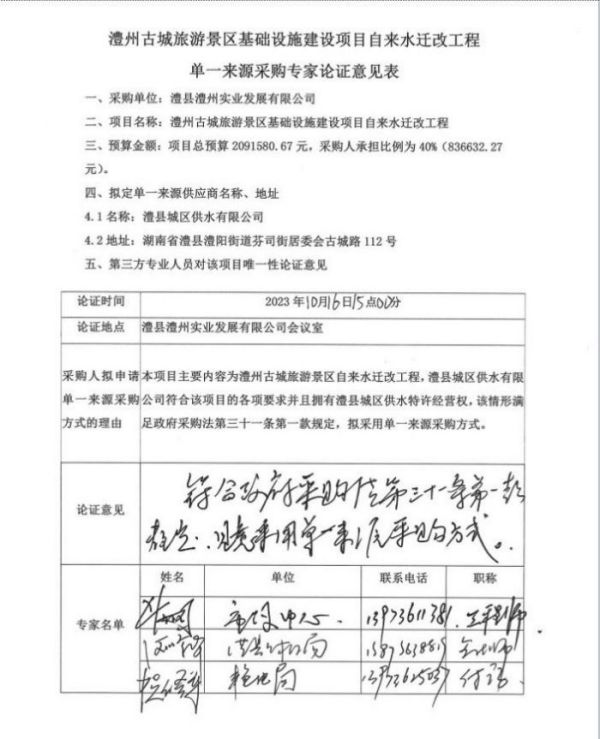 澧州古城旅游景区基础设施建设项目自来水迁改工程
单一来源采购专家论证意见表
一、采购单位：澧县澧州实业发展有限公司
二、项目名称：澧州古城旅游景区基础设施建设项目自来水迁改工程
三、预算金额：项目总预算 2091580.67 元，采购人承担比例为 40%（836632.27
元）。
四、拟定单一来源供应商名称、地址
4.1 名称：澧县城区供水有限公司
4.2 地址：湖南省澧县澧阳街道芬司街居委会古城路 112 号
五、第三方专业人员对该项目唯一性论证意见
论证时间 2023 年10月16日15点00分
论证地点 澧县澧州实业发展有限公司会议室
采购人拟申请单一来源采购方式的理由
本项目主要内容为澧州古城旅游景区自来水迁改工程，澧县城区供水有限
公司符合该项目的各项要求并且拥有澧县城区供水特许经营权，该情形满
足政府采购法第三十一条第一款规定，拟采用单一来源采购方式。
论证意见
符合政府采购法第三十一条第一款
规定，同意采用单一来源采购方式。
专家名单
姓名 单位 联系电话 职称
中心 13973611381 工程师